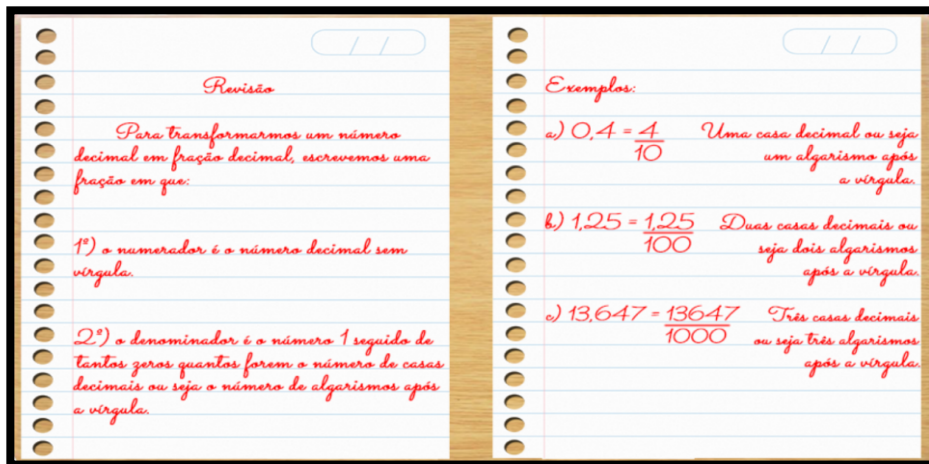 / /
Revisão
Para transformarmos um número
decimal em fração decimal, escrevemos uma
fração em que:
1º) o numerador é o número decimal sem
vírgula.
2º) o denominador é o número 1 seguido de
tantos zeros quantos forem o número de casas
decimais ou seja o número de algarismos após
a vírgula.
/ /
Exemplos:
a) 0,4 = 4/10 Uma casa decimal ou seja
um algarismo após
a vírgula.
b) 1,25 = 1,25/100 Duas casas decimais ou
seja dois algarismos
após a vírgula.
c) 13,647 = 13647/1000 Três casas decimais
ou seja três algarismos
após a vírgula.